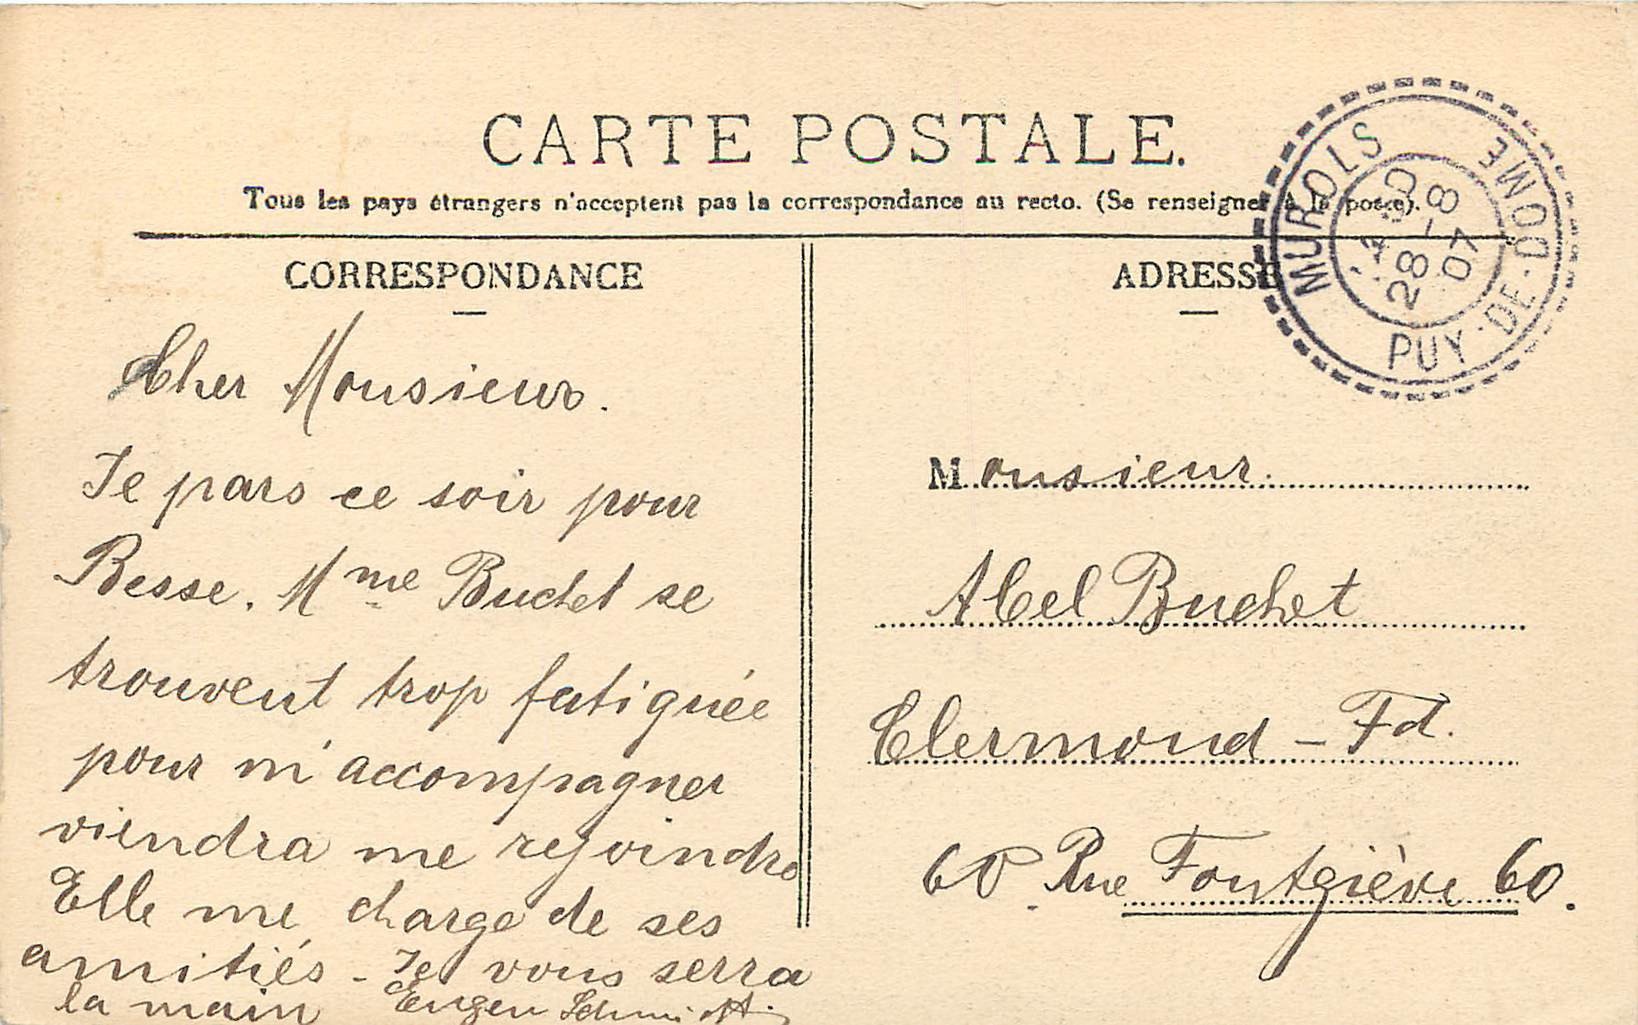 CARTE POSTALE.
Tous les pays étrangers n'acceptent pas la correspondance au recto. (Se renseigner à la poste).
MUROLS
PUY-DE-DOME
28-8
07
CORRESPONDANCE
Cher Monsieur.
Je pars ce soir pour
Besse. Mme Buchet se
trouvent trop fatiguée
pour m'accompagner
viendra me rejoindre
Elle me charge de ses
amitiés - Je vous serra
la main Eugen Schmidt
ADRESSE
Monsieur.
Abel Buchet
Clermond - Fd.
60 Rue Fontgiève 60.